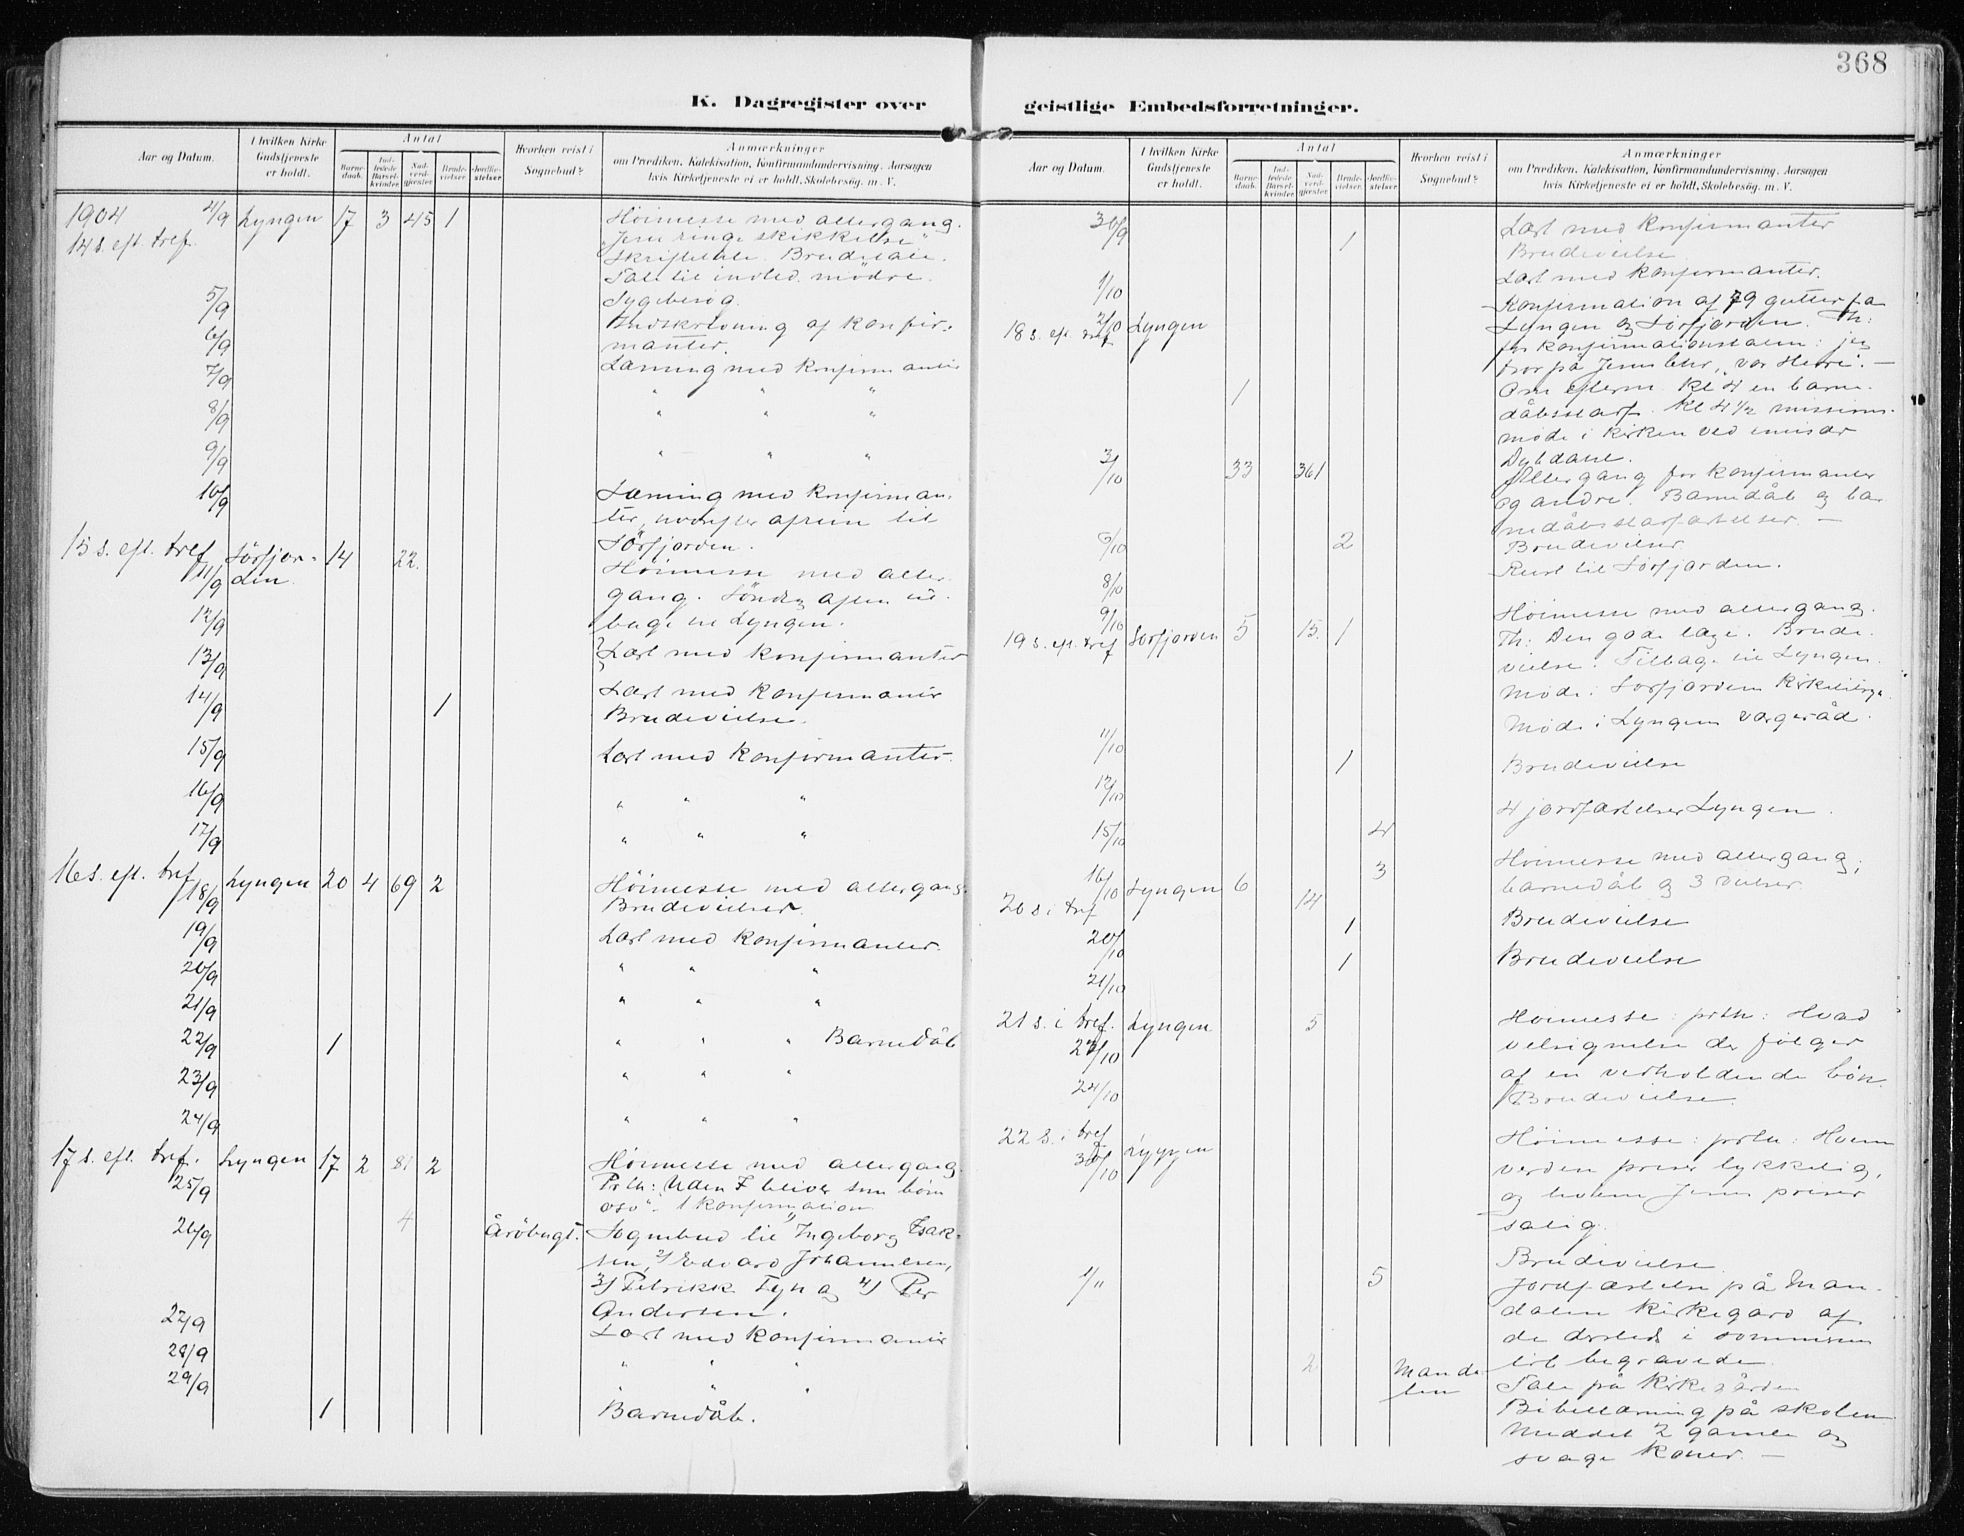 368
K. Dagregister over geistlige Embedsforretninger.
Aar og Datum. I hvilken Kirke Gudstjeneste er holdt. Antal Barnedaab. Indledede Barselkvinder. Nadverdgjester. Brudevielser. Jordfæstelser. Hvorhen reist i Sognebud? Anmærkninger
om Prædiken, Katekisation, Konfirmandundervisning, Aarsagen
hvis Kirketjeneste ei er holdt, Skolebesøg. m. V.
1904 4/9 Lyngen 17 3 45 1 Höimesse med altergang.
14 s. eft. tref. "Jesu ringe skikkelse"
Skriftetale. Brudetale.
Tale til indled. mødre.
5/9 Sygebesög.
6/9 Indskrivning af konfir-
manter.
7/9 Læsning med konfirmanter
8/9 " " "
9/9 " " "
10/9 Læsning med konfirman-
ter, hvorefter afreise til
Sörfjorden.
15 s. eft. tref 11/9 Sörfjor-
den. 14 22. Höimesse med alter-
gang. Söndag aften til-
bage til Lyngen.
12/9
13/9 Læst med konfirmanter
14/9 1 Læst med konfirmanter
Brudevielse.
15/9 Læst med konfirmanter.
16/9 " " "
17/9 " " "
16 s. eft. tref 18/9 Lyngen 20 4 69 2 Höimesse med altergang.
Brudevielser.
19/9 Læst med konfirmanter.
20/9 " " "
21/9 " " "
22/9 1 " " " Barnedåb
23/9 " " "
24/9 " " "
17 s. eft. tref. 25/9 Lyngen 17 2 81 2 Höimesse med altergang.
Prth: Uden I bliver som börn
osv". 1 konfirmation
26/9 4 Årøbugt. Sognebud til 1) Ingeborg Isak-
sen, 2) Edvard Johannesen,
3) Petrikk Fyn og 4) Per
Andersen.
27/9 Læst med konfirmanter
28/9 " " "
29/9 " " "
1 Barnedåb.
Aar og Datum. I hvilken Kirke Gudstjeneste er holdt. Antal Barnedaab. Indledede Barselkvinder. Nadverdgjester. Brudevielser. Jordfæstelser. Hvorhen reist i Sognebud? Anmærkninger
om Prædiken, Katekisation, Konfirmandundervisning, Aarsagen
hvis Kirketjeneste ei er holdt, Skolebesøg. m. V.
30/9 1 Læst med konfirmanter
Brudevielse.
1/10 Læst med konfirmanter.
18 s. eft. tref 2/10 Lyngen Konfirmation af 79 gutter fra
Lyngen og Sörfjorden. Th:
for konfirmationstalen: jeg
tror på Jesus Kr., vor Herre. —
1 Om efterm. kl 4 en barne-
dåbsstadf. kl 4 1/2 missions-
møde i kirken ved emissær
Dybdahl.
3/10 33 361 Altergang for konfirmanter
og andre. Barnedåb og bar
nedåbsstadfæstelser. —
2 Brudevielser.
8/10 Reist til Sörfjorden.
19 s. eft. tref 9/10 Sörfjorden 5 15. 1 Höimesse med altergang.
Th: Den gode læge. Brude-
vielse. Tilbage til Lyngen.
Møde i Sørfjordens kirketilsyn.
11/10 Møde i Lyngens vergeråd.
12/10 1 Brudevielse
15/10 4 4 jordfæstelser Lyngen.
20 s. i tref 16/10 Lyngen 6 14 3 Höimesse med altergang,
barnedåb og 3 vielser.
20/10 1 Brudevielse
21/10 1 Brudevielse
21 s. i tref. 23/10 Lyngen 5 Höimesse: prth: Hvad
velsignelse der følger
af en vedholdende bön.
24/10 Brudevielse.
22 s. i tref 30/10 Lyngen Höimesse: prth: Hvem
verden priser lykkelig,
og hvem Jesus priser
salig.
Brudevielse
1/11 5 Jordfæstelse på Man-
dalens kirkegård af
de derstede i sommerens
löb begravede.
2 Manda-
len Tale på kirkegården
Bibellæsning på skolen
Meddelt 2 gamle og
svage koner. —